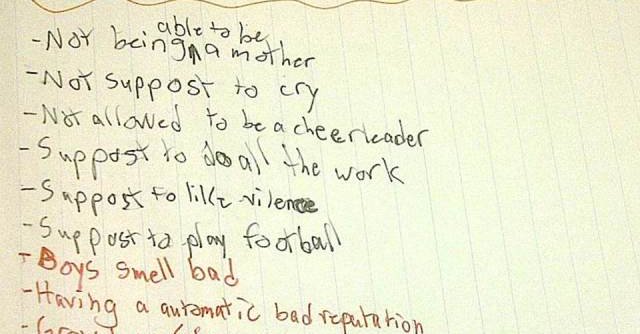 - Not being able to be a mother
- Not suppost to cry
- Not allowed to be a cheerleader
- Suppost to do all the work
- Suppost to like vilence
- Suppost to play football
- Boys smell bad
- Having a automatic bad reputation